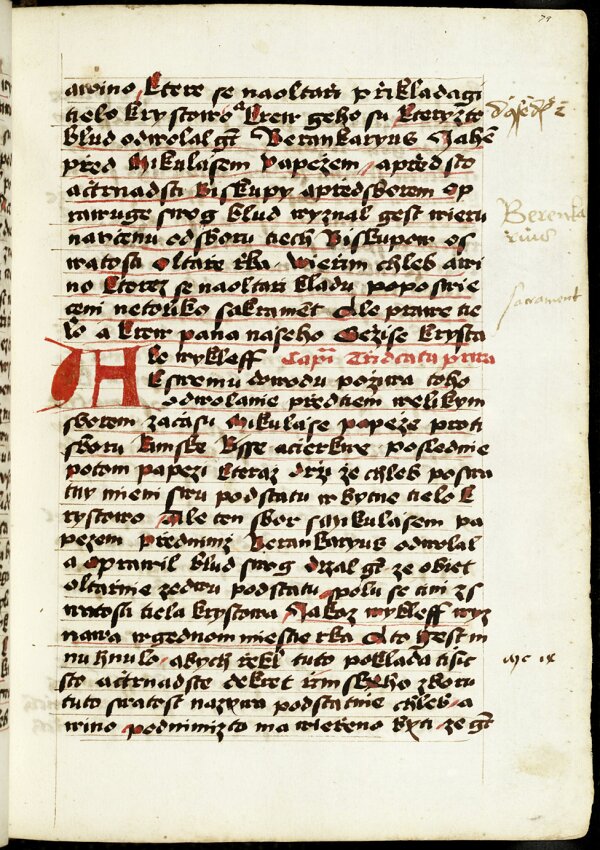 79
awino Ktere se naoltarzi przikladagi
tielo krystowo a Krew geho su Kteryzto
blud odwolal gt Berankaryus Jahen
przed Mikulasem papezem aprzed sto
acztrnadsti Biskupy aprzedsborem op
rawuge swog blud wyznal gest wieru
nauczenu odsboru tiech Biskupow os
watosti oltarze rka wierim chleb awi
no Kterez se naoltarzi kladu poposwie
ceni netoliko sakrament Ale prawe tie
lo a Krew pana naseho Gezise krysta
Ale wykleff Capi Tridcata prwa
k swemu dowodu pozywa toho
odwolanie przedtiem welikym
sborem zaczasu Mikulase papeze proti
sboru Rimske Rsse acierkwe poslednie
potom papezi kteraz drzi ze chleb poswa
tny mieni swu podstatu wbytne tielo k
rystowo Ale ten sbor smikulasem pa
pezem przednimz Berankaryus odwolal
a oprawil blud swog drzal gt ze obiet
oltarnie zedwu podstatu spolu se czini zs
watosti tiela krystowa Jakoz wykleff wyz
nawa wgednom miestie rka Ato gest m
nu hnulo abych rzekl tuto poklada tisic
sto acztrnadste dekret rimskeho zboru
tuto swatost nazywa podstatnie chleb a
wino podnimizto ma wierzeno byti ze gt
Berenka
rius
sacrament